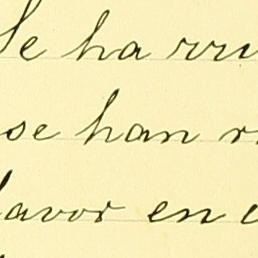 Se ha
se han
favor en